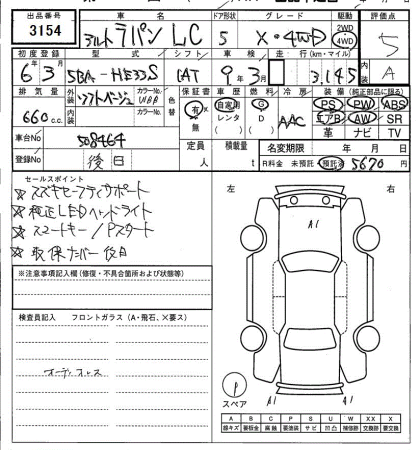 出品番号 車名 ドア形状 グレード 駆動 評価点
3154 アルト ラパン LC 5 X・4WD 2WD 4WD 5
初度登録 型式 シフト 車検 走行(km・マイル) 内装
6年 3月 5BA-HE33S IAT 9年 3月 3,145 A
排気量 外装 カラーNo. 内装 カラーNo. 色替 保証書 車歴 燃料 冷房 装備(純正部品に限る)
660 c.c. ソフトベージュ 有 無 自家用 レンタ G D AAC PS PW ABS
エアB AW SR
革 ナビ TV
車台No 508464 定員 積載量 名変期限 年 月 日
登録No 後日 人 t R料金 未預託 預託済 5670 円
セールスポイント
☆ スズキセーフティサポート
☆ 純正LEDヘッドライト
☆ スマートキー/Pスタート
☆ 取保ナンバー後日
※注意事項記入欄(修復・不具合箇所および状態等)
検査員記入 フロントガラス(A・飛石、×要ス)
オーディオレス
左 右
A1
P
スペア
A1 A1
A B C P S U W X XX
線キズ 要板金 腐蝕 要塗装 サビ 凹凸 補修跡 交換跡 要交換